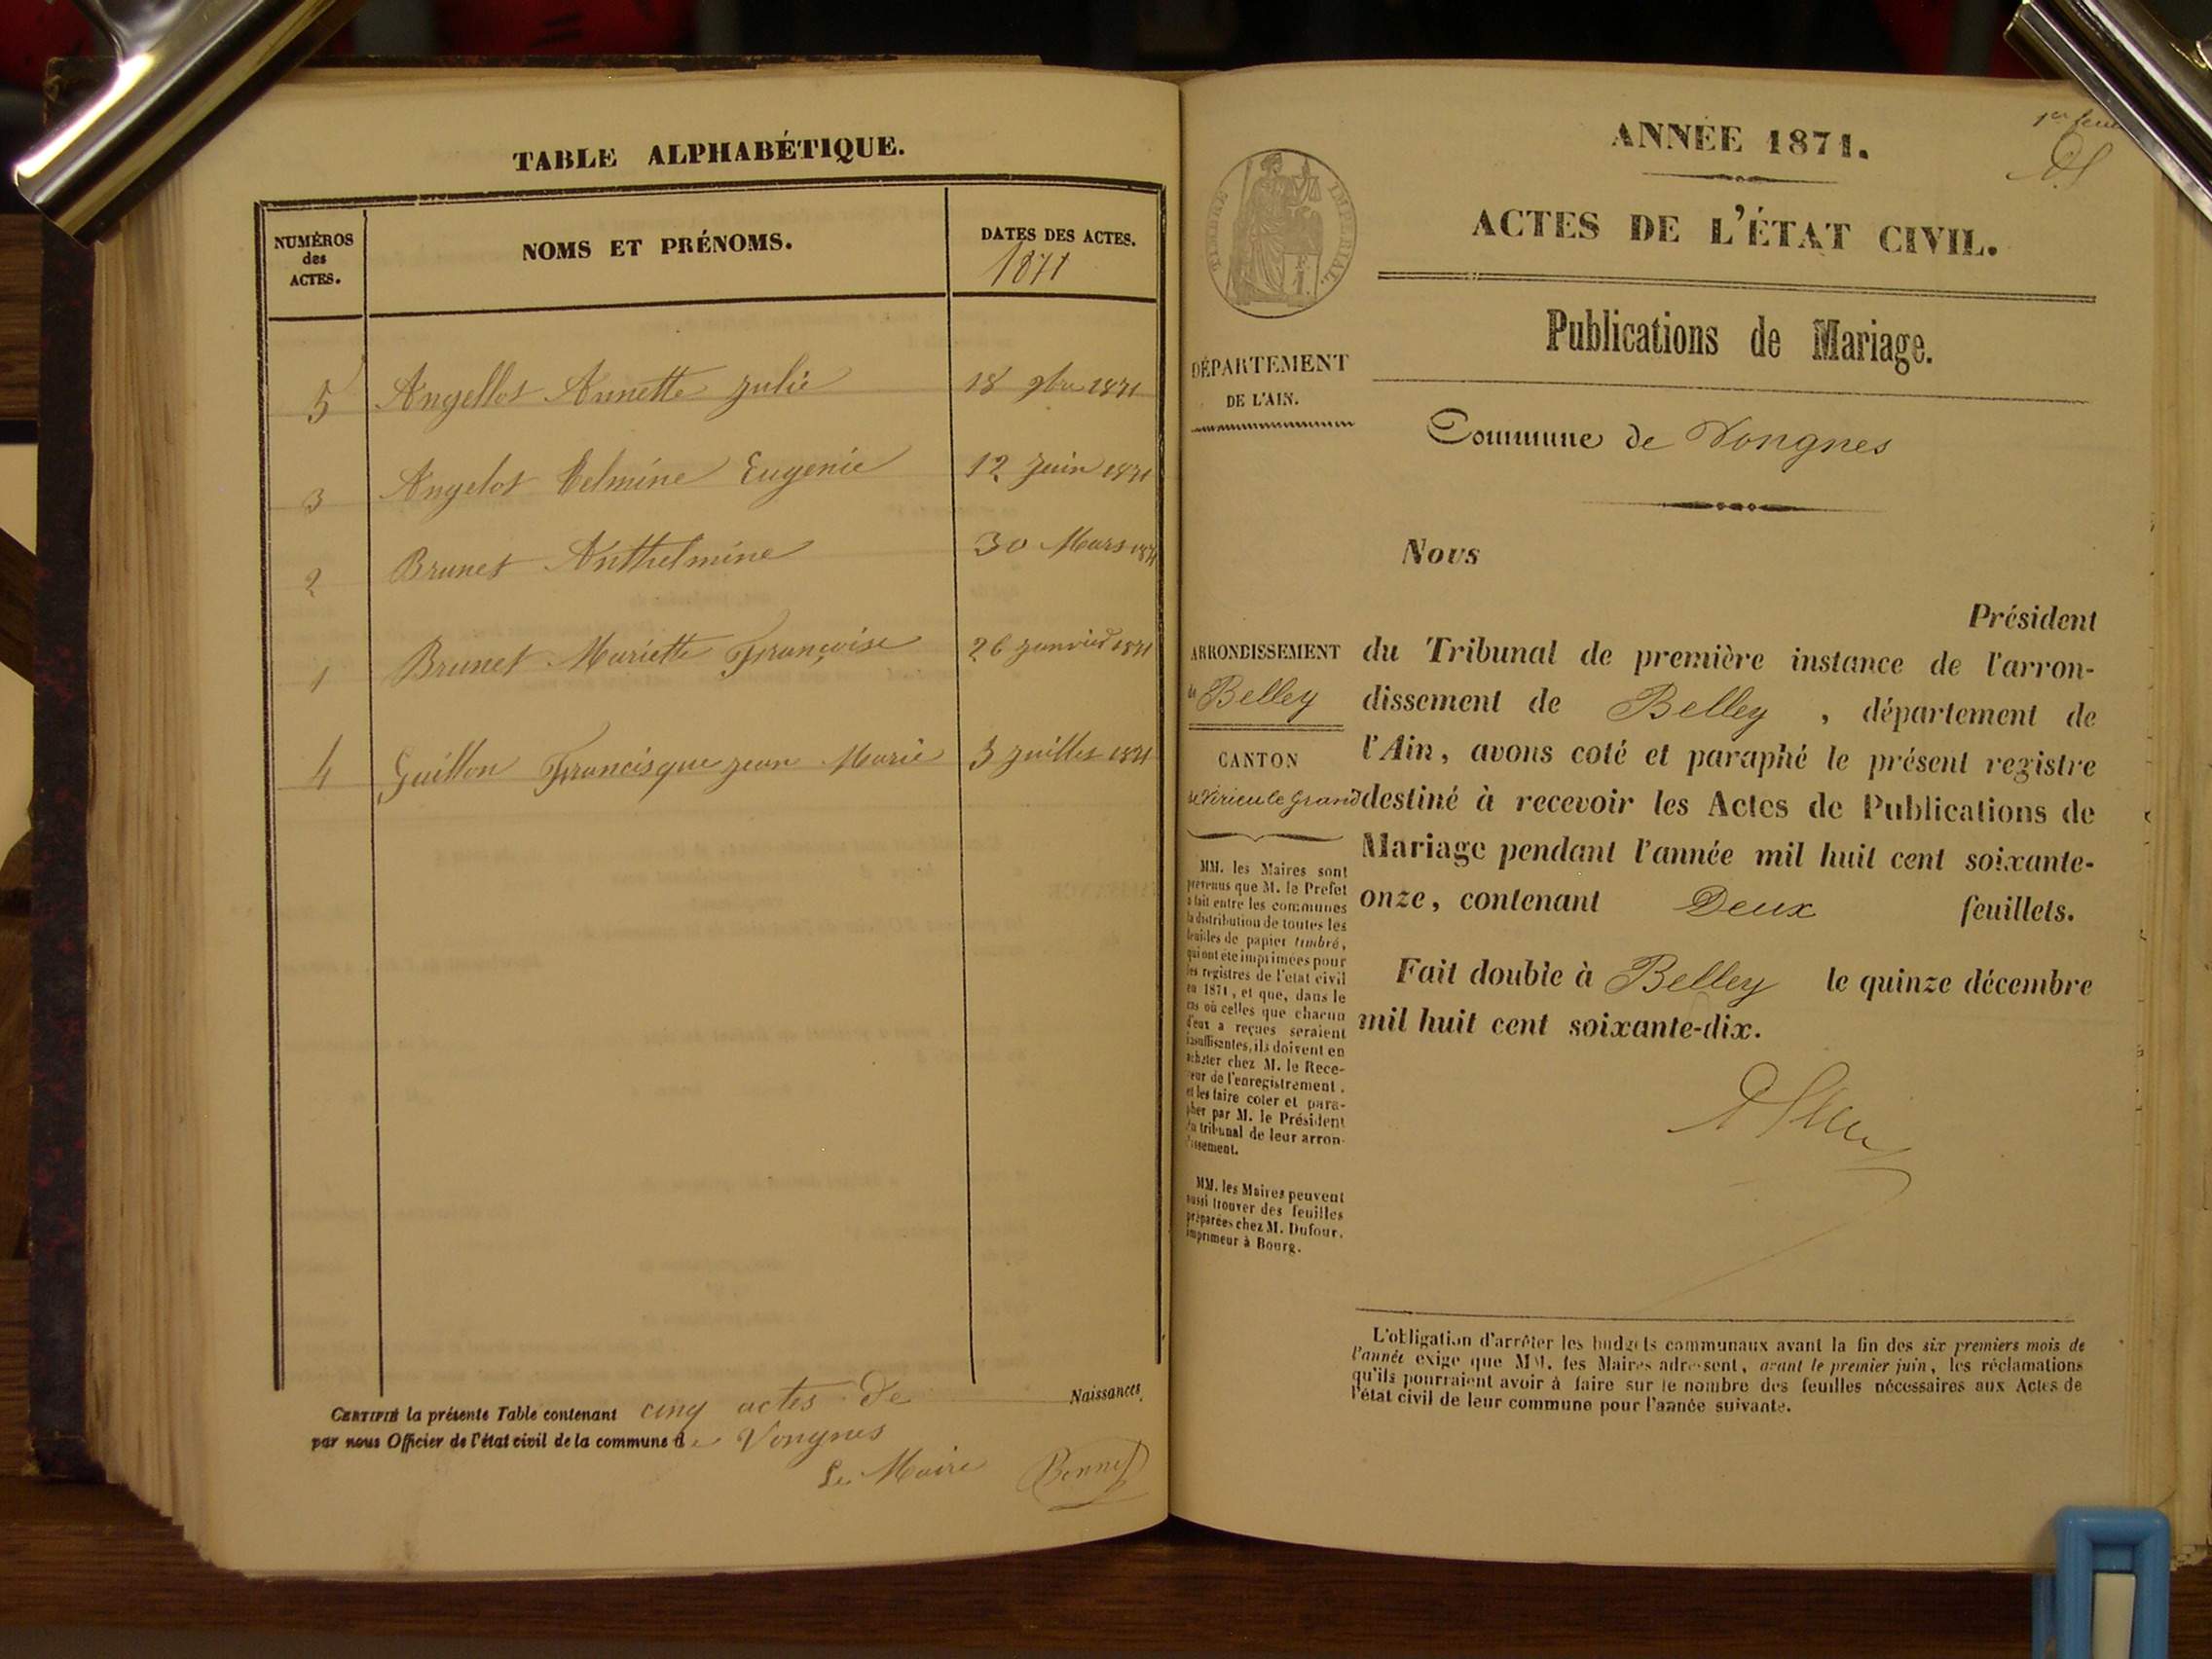 TABLE ALPHABÉTIQUE.
NUMÉROS
des
ACTES.
NOMS ET PRÉNOMS.
DATES DES ACTES.
1871
5 Angellot Annette Julie 18 9bre 1871
3 Angelot Eugenie 12 Juin 1871
2 Brunet Anthelmine 30 Mars 1871
1 Brunet Mariette Françoise 26 Janvier 1871
4 Guillon Francisque Jean Marie 3 Juillet 1871
CERTIFIÉ la présente Table contenant cinq actes de Naissances
par nous Officier de l'état civil de la commune de Vongnes
Le Maire
ANNÉE 1871.
ACTES DE L'ÉTAT CIVIL.
TIMBRE IMPÉRIAL.
Publications de Mariage.
DÉPARTEMENT
DE L'AIN.
Commune de Vongnes
ARRONDISSEMENT
de Belley
CANTON
de Virieu le Grand
MM. les Maires sont
prévenus que M. le Préfet
a fait entre les communes
la distribution de toutes les
feuilles de papier timbré,
qui ont été imprimées pour
les registres de l'état civil
en 1871, et que, dans le
cas où celles que chacun
d'eux a reçues seraient
insuffisantes, ils doivent en
acheter chez M. le Rece-
veur de l'enregistrement,
et les faire coter et para-
pher par M. le Président
du tribunal de leur arron-
dissement.
MM. les Maires peuvent
aussi trouver des feuilles
préparées chez M. Dufour,
imprimeur à Bourg.
Nous
Président
du Tribunal de première instance de l'arron-
dissement de Belley, département de
l'Ain, avons coté et paraphé le présent registre
destiné à recevoir les Actes de Publications de
Mariage pendant l'année mil huit cent soixante-
onze, contenant Deux feuillets.
Fait double à Belley le quinze décembre
mil huit cent soixante-dix.
L'obligation d'arrêter les budgets communaux avant la fin des six premiers mois de
l'année exige que MM. les Maires adressent, avant le premier juin, les réclamations
qu'ils pourraient avoir à faire sur le nombre des feuilles nécessaires aux Actes de
l'état civil de leur commune pour l'année suivante.